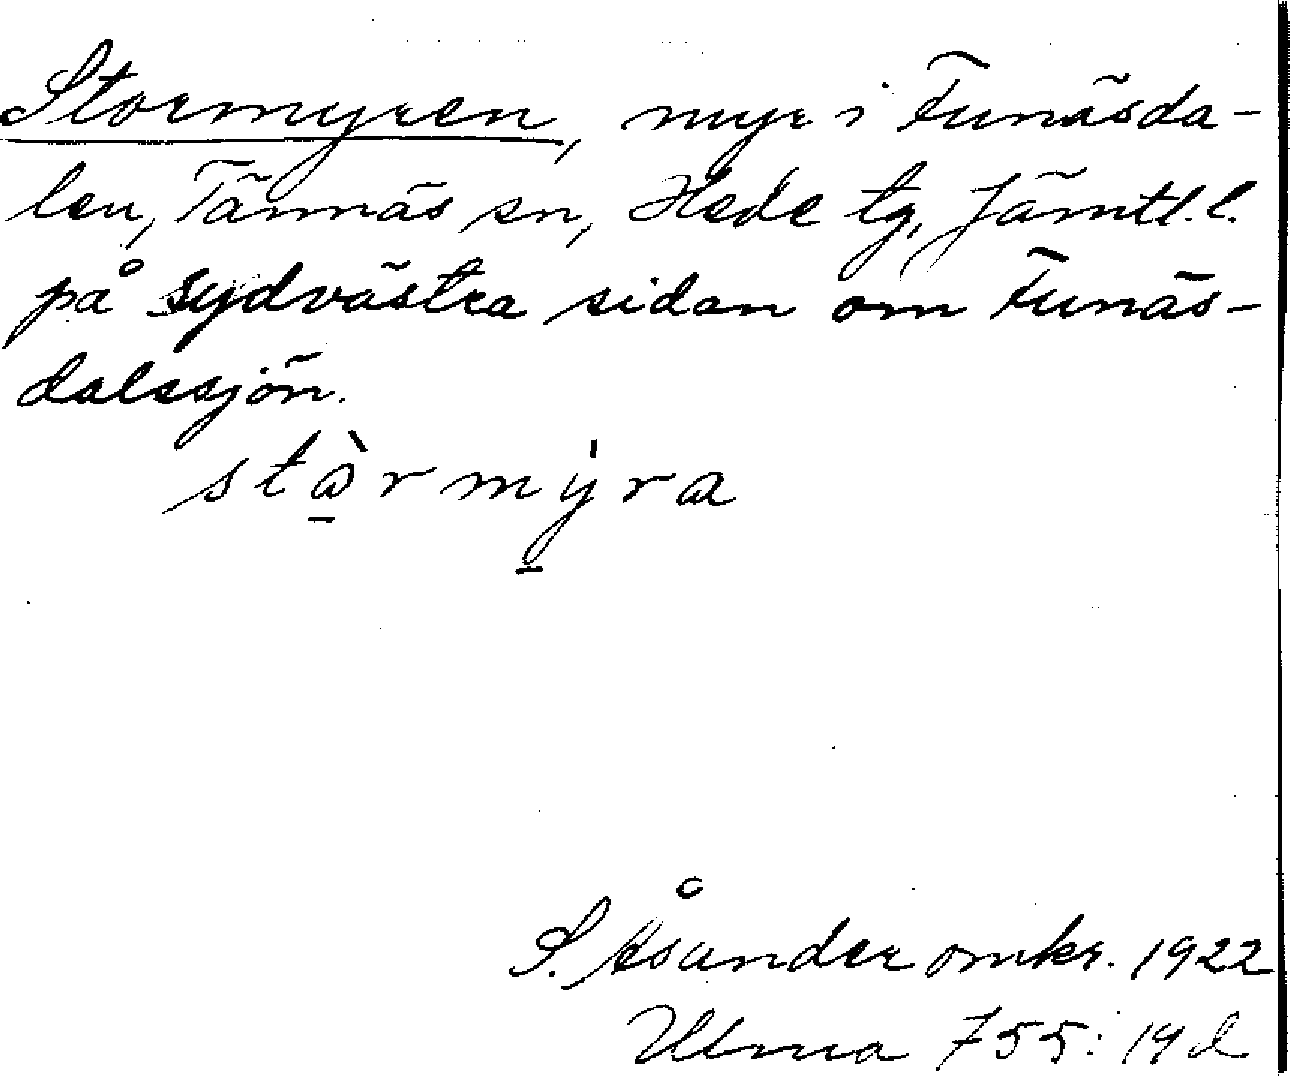 Stormyren, myr i Funäsda-
len, Tännäs sn, Hede tg, Jämtl.l.
på sydvästra sidan om Funäs-
dalssjön.
stὰ̱rmy̱̍ra
S. Åsander omkr. 1922
Ulma 755: 19 d